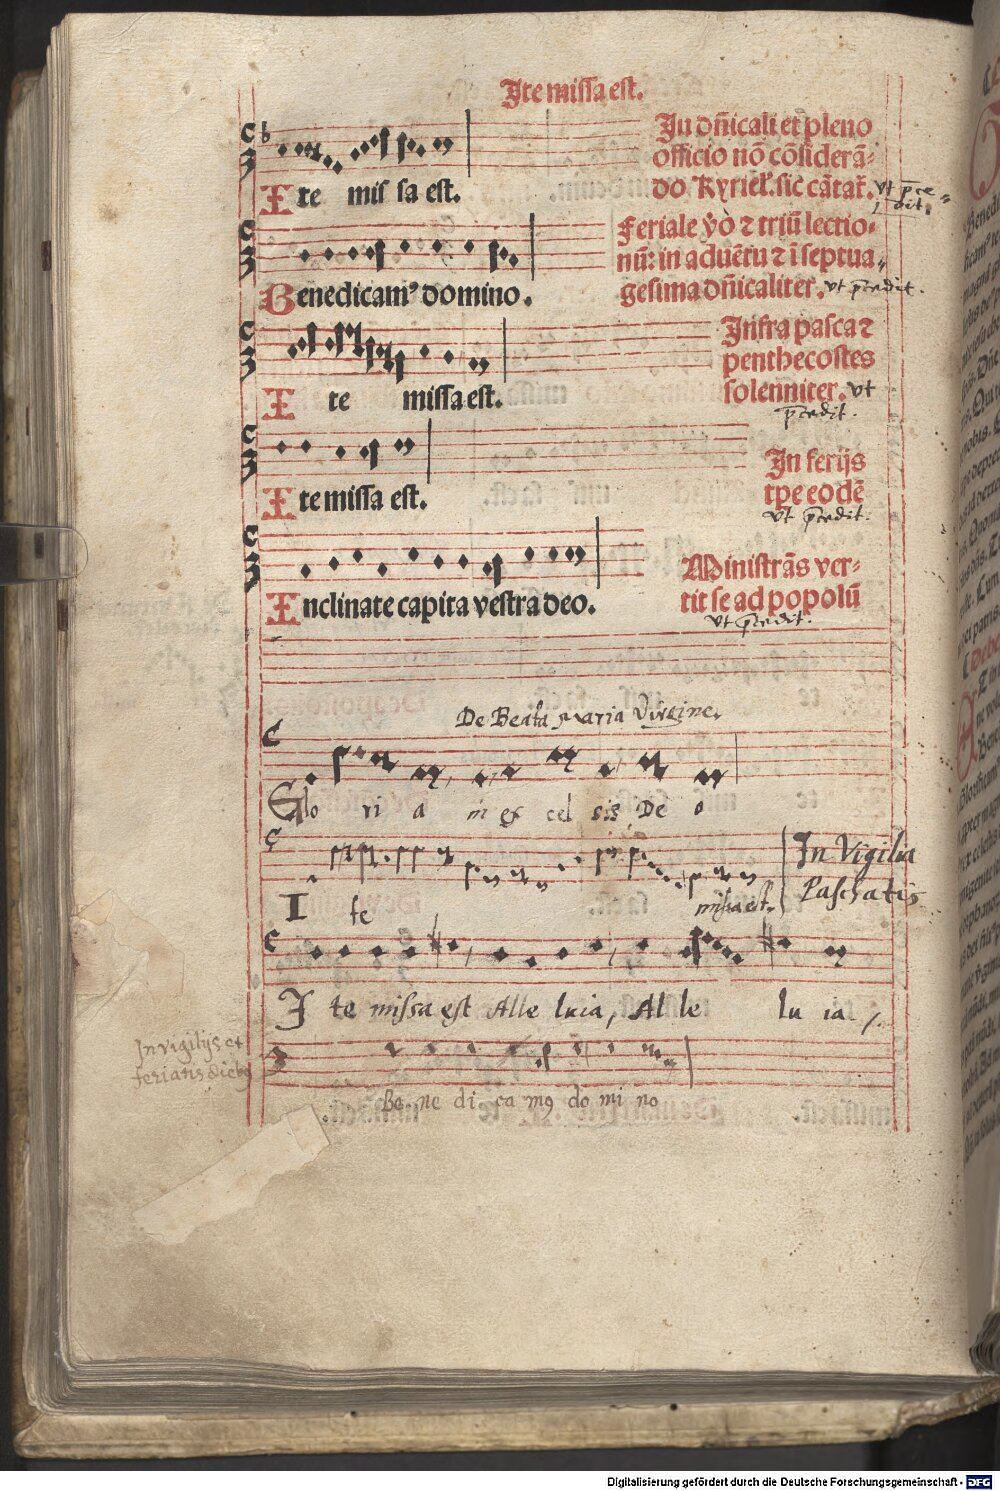 Ite missa est.
In dn̄icali et pleno
officio nō cōsiderā⸗
do Kyriel̄. sic cātat̄. vt p̄ce⸗
dit.
Ite mis sa est.
Feriale v̄o ⁊ triū lectio⸗
nū: in aduētu ⁊ ī septua⸗
gesima dn̄icaliter. vt p̄cedit.
Benedicamꝰ domino.
Infra pasca ⁊
penthecostes
solenniter. vt
p̄cedit.
I te missa est.
In ferijs
tp̄e eodē
vt p̄cedit.
Ite missa est.
Ministrās ver⸗
tit se ad populū
vt p̄cedit.
Inclinate capita vestra deo.
De Beata Maria Virgine.
Glo ri a in ex cel sis De o
In Vigilia
Paschatis
I te missa est.
I te missa est Alle luia, Al le lu ia
In vigilijs et
feriatis dieb
Be ne di ca mꝰ do mi no
Digitalisierung gefördert durch die Deutsche Forschungsgemeinschaft - DFG